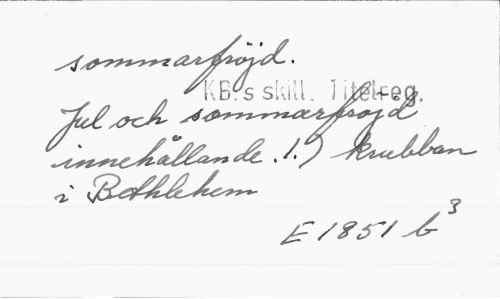 sommarfröjd.
KB:s skill. Titelreg.
Jul och sommarfröjd
innehållande. 1.) krubban
i Bethlehem
E 1851 b³